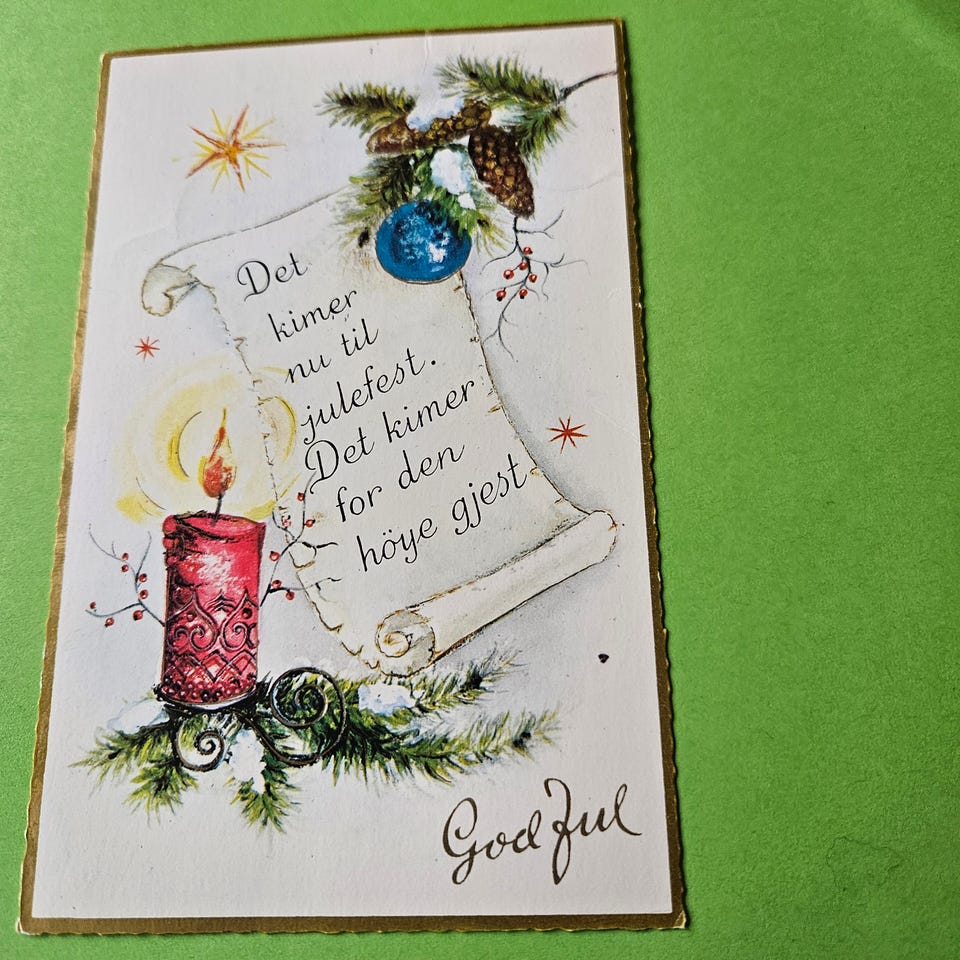 Det
kimer
nu til
julefest.
Det kimer
for den
höye gjest
God Jul